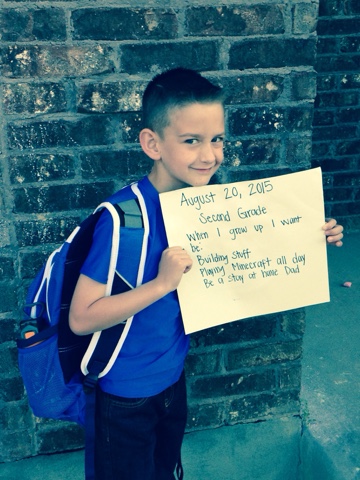 August 20, 2015
Second Grade
When I grow up I want
be:
Building stuff
Playing Minecraft all day
Be a stay at home Dad